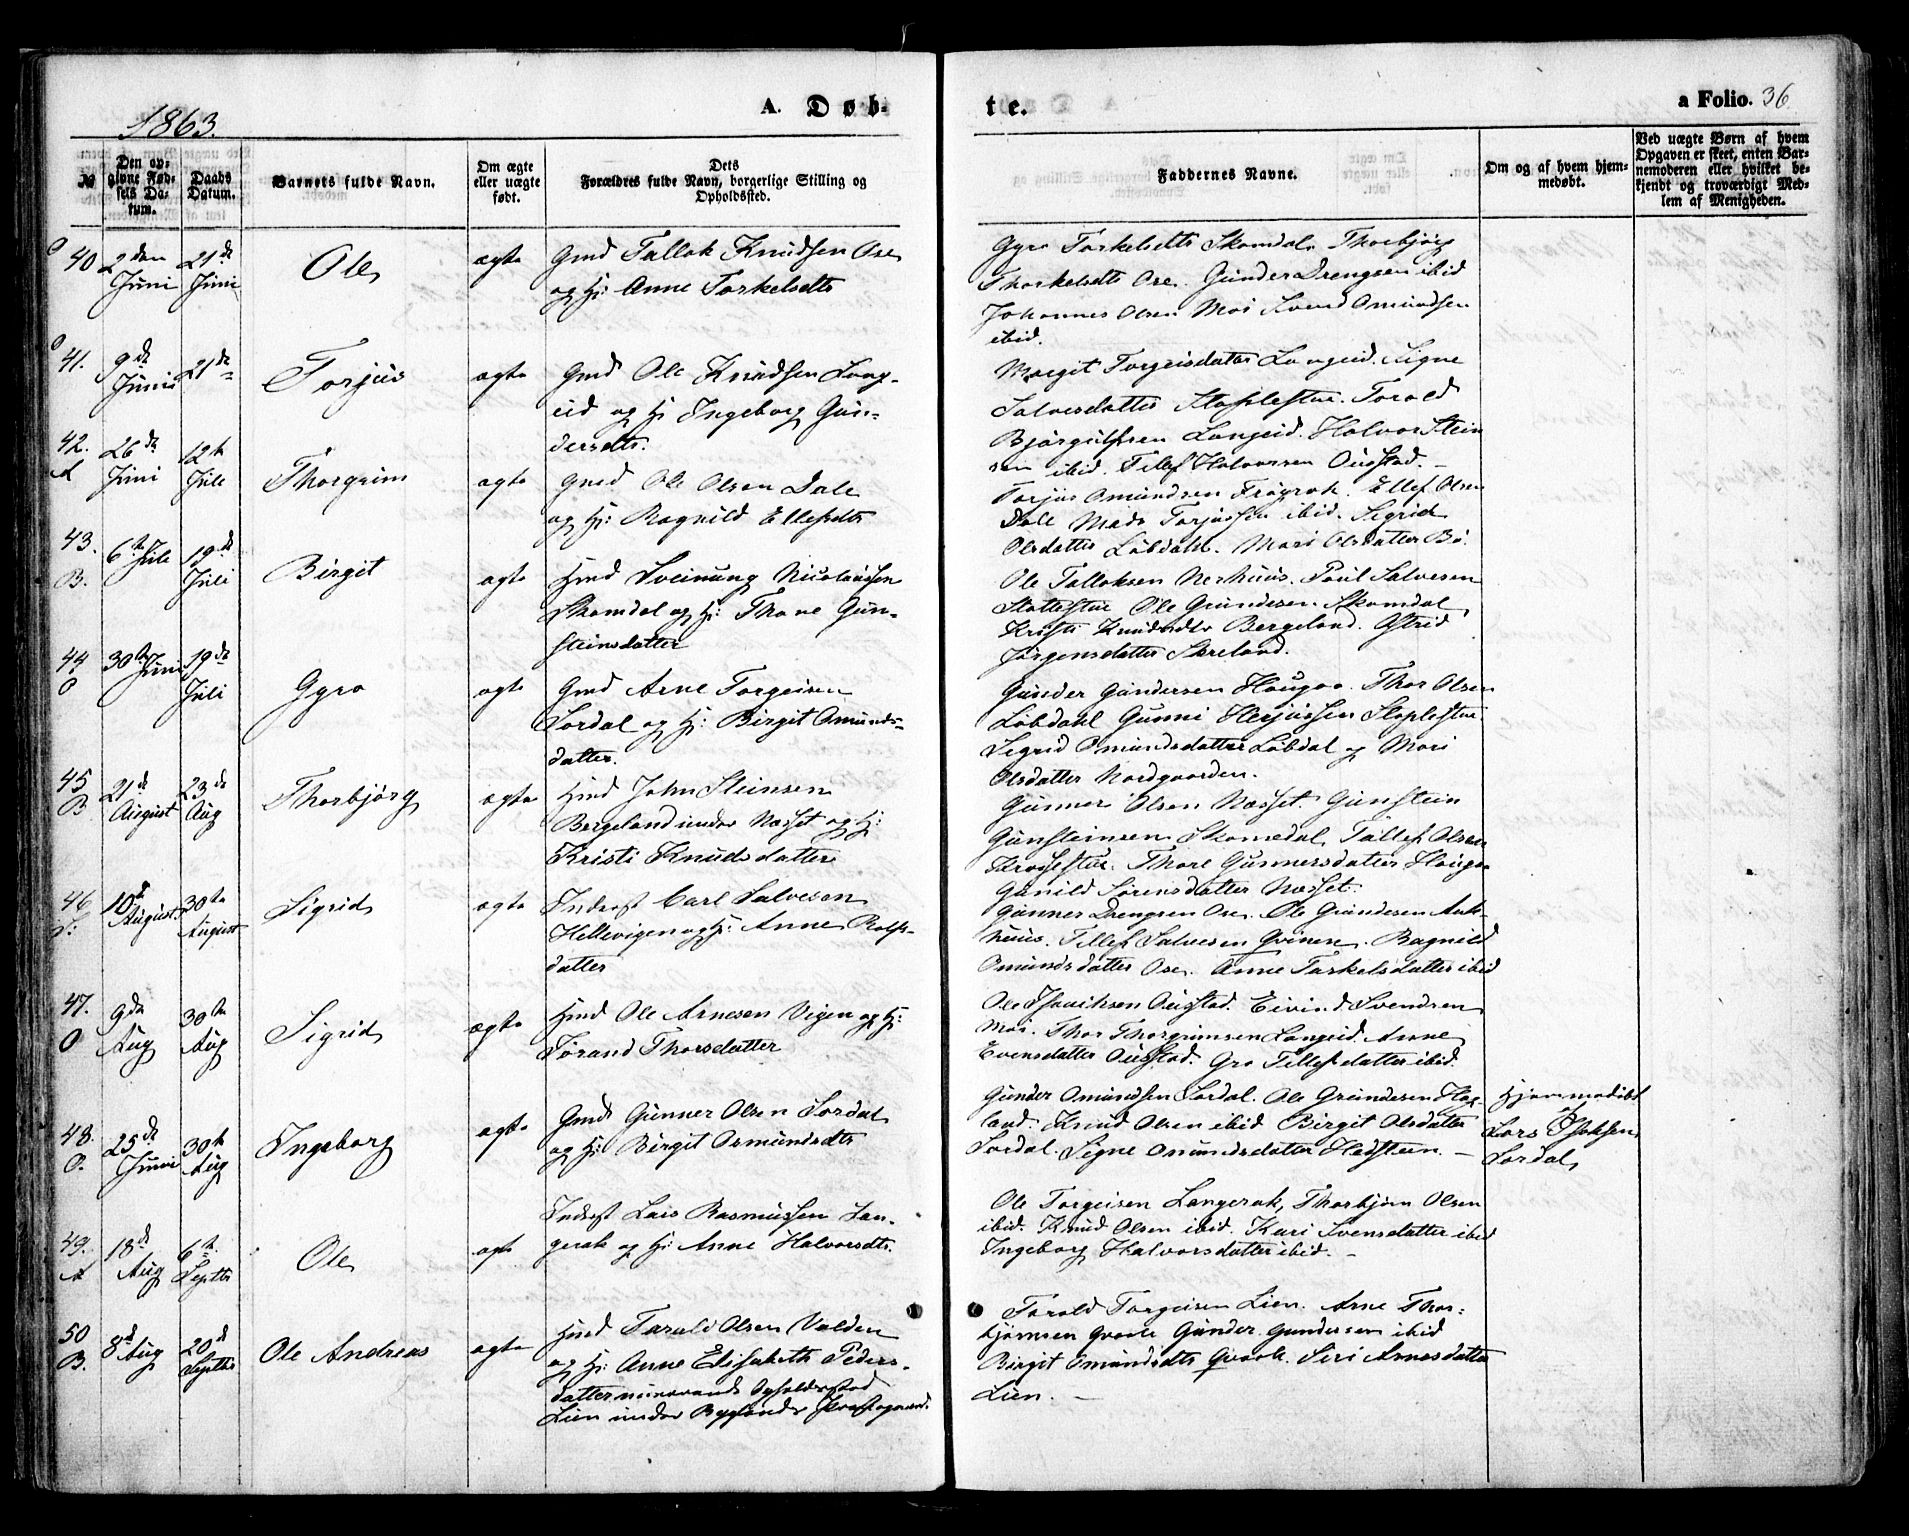 1863.
A. Døb-
te.
a Folio. 36
№
Den opgivne Fødsels Datum.
Daabs Datum.
Barnets fulde Navn.
Om ægte eller uægte født.
Dets Forældres fulde Navn, borgerlige Stilling og Opholdssted.
Faddernes Navne.
Om og af hvem hjemmedøbt.
Ved uægte Børn af hvem Opgaven er skeet, enten Barnemoderen eller hvilket bekjendt og troværdigt Medlem af Menigheden.
40 2den Juni 21de Juni Ole ægte
Gmd Tallak Knudsen Ose
og Hj: Anne Torkelsdtr
Gyro Torkelsdtr Skomdal. Thorbjørg
Thorkelsdtr Ose. Gunder Drengsen ibid
Johannes Olsen Moi Svend Omundsen
ibid.
41. 9de Juni 21de Torjus ægte
Gmd Ole Knudsen Lang-
eid og Hj Ingeborg Gun-
dersdtr.
Margit Torgeisdatter Langeid. Signe
Salvesdatter Staplestue. Torald
Bjørgulfsen Langeid. Halvor Stein
sen ibid. Tellef Halvorsen Ousstad. -
42. 26de Juni 12te Juli Thorgrim ægte
Gmd Ole Olsen Dale
og Hj: Ragnild Ellefsdtr
Torjus Omundsen Frøyrak. Ellef Olsen
Dale Mads Torjussen ibid. Sigrid
Olsdatter Løbdahl. Mari Olsdatter Bø.
43. B. 6te Juli 19de Juli Birgit ægte
Hmd Sveinung Nicolaissen
Skomdal og Hj: Thone Gun-
steinsdatter
Ole Tallaksen Nerhuus. Poul Salvesen
Ole Gundersen Skomdal
Kristi Knudsdtr Bergeland. Astrid
Jørgensdatter Skreland.
44 O 30te Juni 19de Juli Gyro ægte
Gmd Arne Torgeisen
Sordal og Hj: Birgit Omunds-
datter.
Gunder Gundersen Hougaa. Thor Olsen
Løbdahl Gunni Herjussen Staplestue
Sigrid Omundsdatter Løbdal og Mari
Olsdatter Nordgaarden.
45 B 21de August 23de Aug Thorbjørg ægte
Hmd John Steinsen
Bergeland under Næsset og Hj:
Kristi Knudsdatter
Gunner Olsen Næsset. Gunstein
Gunsteinsen Skomedal, Tellef Olsen
Thore Gunnersdatter
Gunild Sørensdatter Næsset.
46 10de August 30te August Sigrid ægte
Inderst Carl Salvesen
Hellevigen og Hj: Anne Rolfs-
datter
Gunner Drengsen Ose. Ole Gundersen Aak-
huus. Tellef Salvesen Ragnild
Omundsdatter Ose. Anne Torkelsdatter ibid
47. O 9de Aug 30te Aug Sigrid ægte
Hmd Ole Arnesen Vigen og Hj:
Sørand Thorsdatter
Ole Ousstad. Eivind Svendsen
Moi. Thor Thorgrimsen Langeid. Anne
Evensdatter Ousstad. Gro Tellefsdatter ibid.
48. O. 25de Juni 30te Aug Ingeborg ægte
Gmd Gunner Olsen Sordal
og Hj: Birgit Osmundsdtr
Gunder Omundsen Sordal. Ole Gundersen Hog-
land. Knud Olsen ibid Birgit Olsdatter
Sordal. Signe Omundsdatter Hedsteen. -
Hjemmedøbt
af
Lars
Sordal
49. 18de Aug 6te Septbr Ole ægte
Inderst Lars Rasmussen Lan-
gerak og Hj: Anne Halvorsdtr.
Ole Torgeisen Langerak, Thorbjørn Olsen
ibid. Knud Olsen ibid. Kari Svensdatter ibid
Ingeborg Halvorsdatter ibid. -
50 B. 8de Aug 20de Septbr Ole Andreas ægte
Hmd Tarald Olsen Valden
og Hj: Anne Elisabeth Peders-
datter nuværende Opholdssted
Lien under Byglands Præstegaard.
Torald Torgeisen Lien. Arne Thor-
bjørnsen Qvaale Gunder Gundersen ibid
Birgit Omundsdtr Qvaale. Siri Arnesdatter
Lien. -